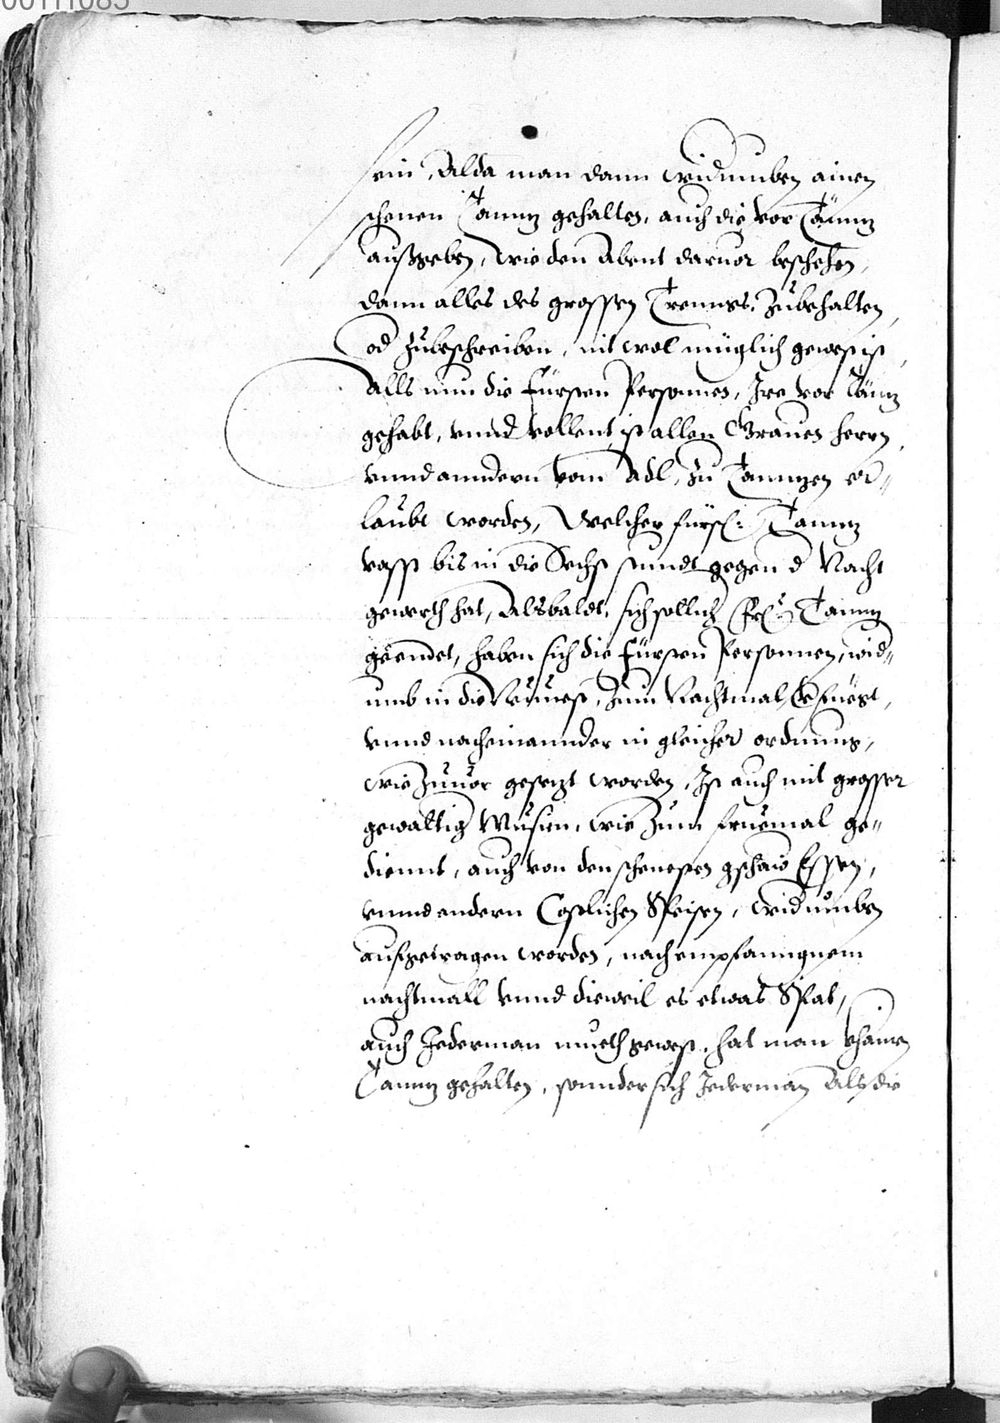 00111085
ein, Alda man dann widerumben ainen
schenen Tanntz gehalten, auch die vor Tänntz
außgeben, wie den Abent daruor beschehen,
dann alles des grossen Trennges, zubehalten,
od zubeschreiben, nit wol müglich gewest ist,
Alls nun die Fürsten Personnen, Ire vor Tänntz
gehabt, vnnd vollent, ist allen Grauen herrn,
vnnd anndern vom Adl, zu Tanntzen er„
laubt worden, Welcher fürstl: Tanntz
vasst bis in die Sechst stundt gegen d Nacht
gewerth hat, Alsbaldt, sich sollich Frl: Tanntz
geendet, haben sich die Fürsten Personnen, wid„
umb in die Neuuest, zum Nachtmal, gefüegt,
vnnd nacheinannder in gleicher ordnung,
wie zuuor gesetzt worden, Ist auch mit grosser
gewaltig Musicn, wie zum fruemal ge„
diennt, auch von den schenesten gschaw Essen,
vnnd andern Costlichen Speisen, widerumben
aufgetragen worden, nach empfanngnem
nachtmall vnnd dieweil es etwas Spat,
auch Jederman mueth gewest, hat man khainen
Tanntz gehalten, sonnder sich Jederman Als die